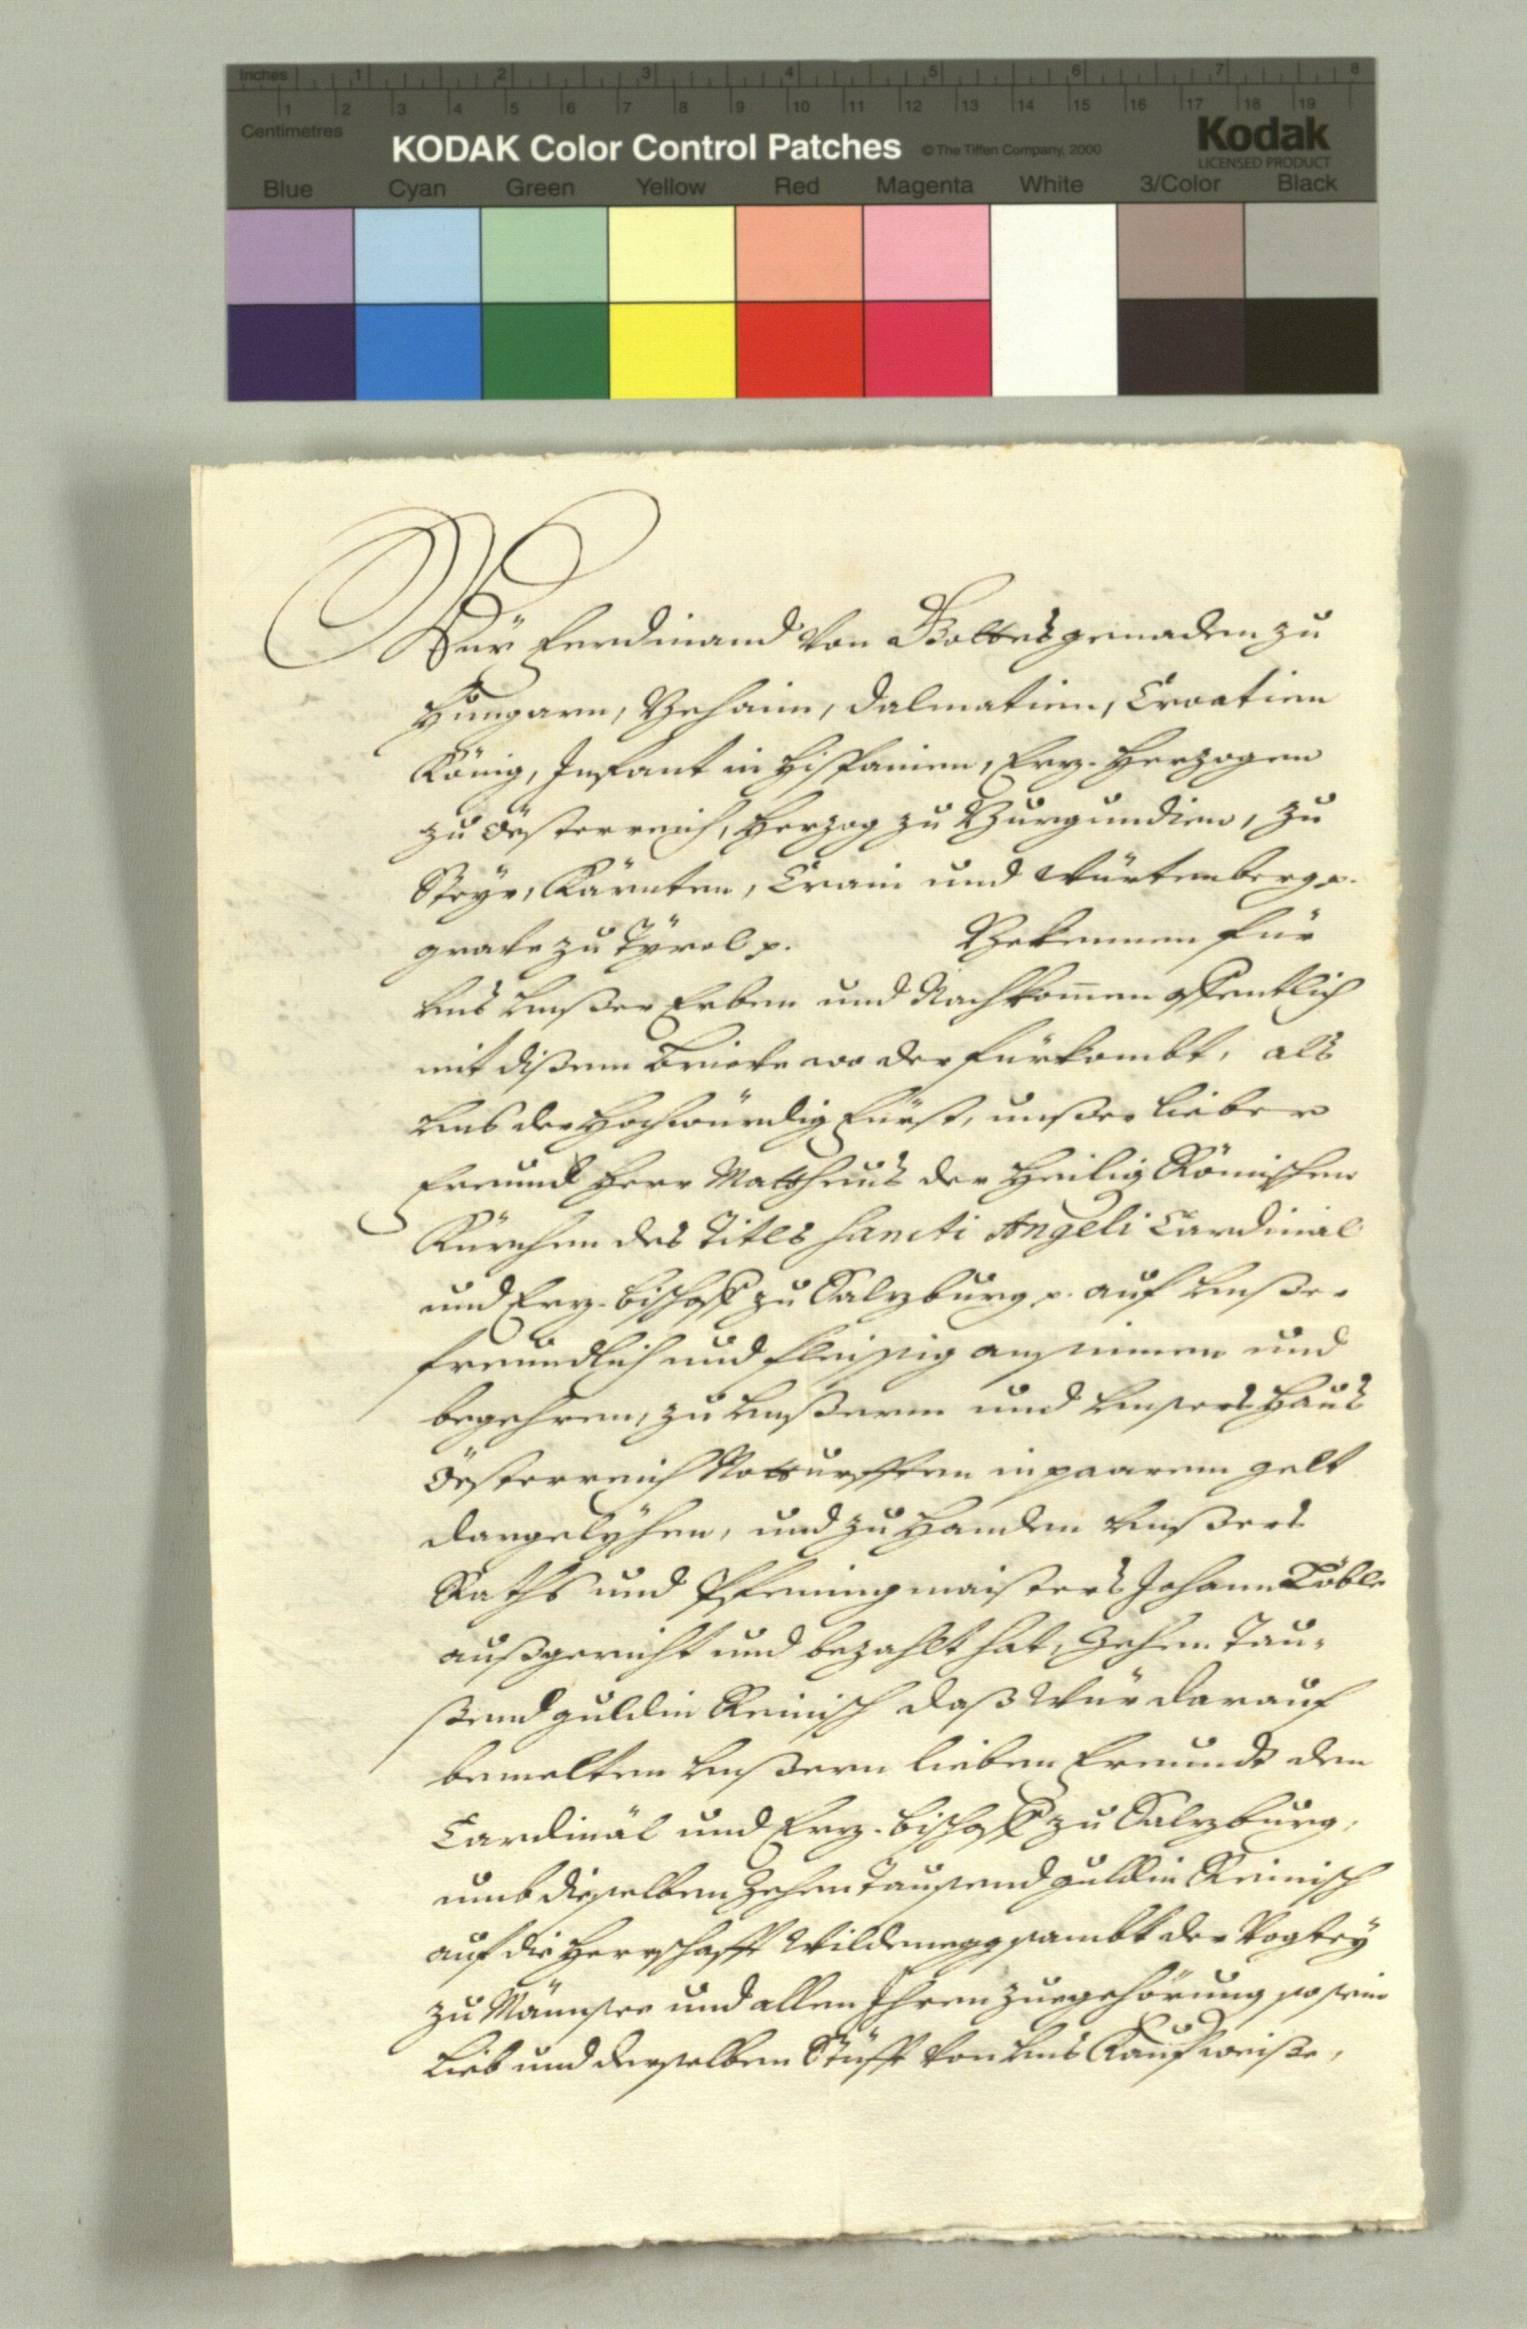 Inches 1 2 3 4 5 6 7 8
1 2 3 4 5 6 7 8 9 10 11 12 13 14 15 16 17 18 19
Centimetres
KODAK Color Control Patches © The Tiffen Company, 2000 Kodak
LICENSED PRODUCT
Blue Cyan Green Yellow Red Magenta White 3/Color Black
Wür Ferdinand von Gottes genaden zu
Hungarn, Behaim, Dalmatien, Croatien
König, Infant in Hispanien, Erz-Herzogen
zu Össterreich, Herzog zu Burgundien, zu
Steyr, Kärnten, Crain und Würtemberg p.
grave zu Tyrol p. Bekennen für
Uns Unßer Erben und Nachkomen offentlich
mit dißem Briefe wo der fürkombt, als
Uns der Hochwürdig Fürst, unßer lieber
Freund Herr Mattheus der Heilig Römischen
Kürchen des Titls Sancti Angeli Cardinal
und Erz-Bischoff zu Salzburg p. auf Unßer
freundlich und fleissig ansinnen und
begehren, zu Unßeren und Unsers Haus
Össterreich Notturfften in paarem gelt
dargelyhen, und zu Handen Unßers
Raths und Pfeningmaisters Johann Löble
außgericht und bezahlt hat, Zehen Tau-
ßend guldin Reinisch daß Wür darauf
bemelten Unßern lieben Freundt dem
Cardinäl und Erz-Bischoff zu Salzburg,
umb dieselben Zehen Tausend guldin Reinisch
auf die Herrschafft Wildenegg sambt der Vogtey
zu Mannsee und allen Ihren zuegehörung so sein
Lieb und derselben Stüfft von Uns Kaufweiße,